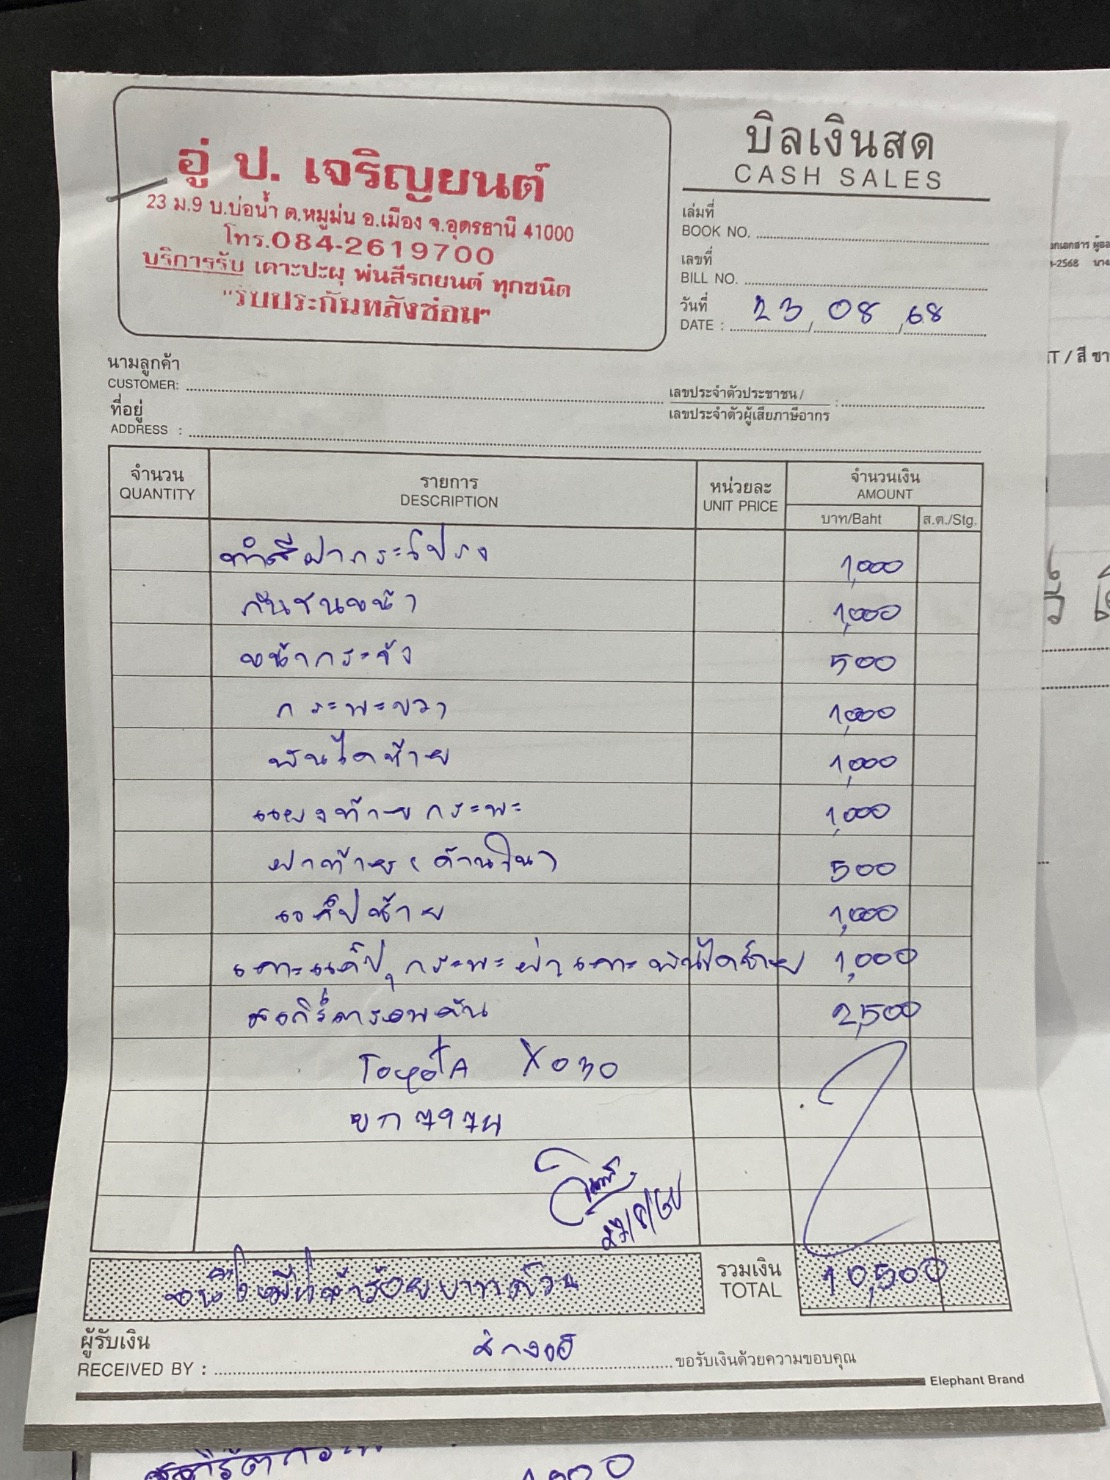 อู่ ป. เจริญยนต์
23 ม.9 บ.บ่อน้ำ ต.หมูม่น อ.เมือง จ.อุดรธานี 41000
โทร.084-2619700
บริการรับ เคาะปะผุ พ่นสีรถยนต์ ทุกชนิด
"รับประกันหลังซ่อม"
บิลเงินสด
CASH SALES
เล่มที่
BOOK NO.
เลขที่
BILL NO.
วันที่
DATE : 23/08/68
นามลูกค้า
CUSTOMER:
เลขประจำตัวประชาชน/ :
เลขประจำตัวผู้เสียภาษีอากร
ที่อยู่
ADDRESS :
จำนวน รายการ หน่วยละ จำนวนเงิน
QUANTITY DESCRIPTION UNIT PRICE AMOUNT
บาท/Baht ส.ต./Stg.
ทำสีฝากระโปรง 1,000
กันชนหน้า 1,000
หน้ากระจัง 500
กระพะขวา 1,000
บันไดซ้าย 1,000
แผงท้ายกระพะ 1,000
ฝาท้าย (ด้านใน) 500
แค็ปซ้าย 1,000
เคาะแค็ป, กระพะ ฝา เคาะ บันไดซ้าย 1,000
สติ๊กเกอร์รอบคัน 2,500
ToyotA
บก 7971
27/8/68
หนึ่งหมื่นห้าร้อยบาทถ้วน
รวมเงิน 10,500
TOTAL
ผู้รับเงิน
RECEIVED BY : ขอรับเงินด้วยความขอบคุณ
Elephant Brand
-2568
IT / สี ขา